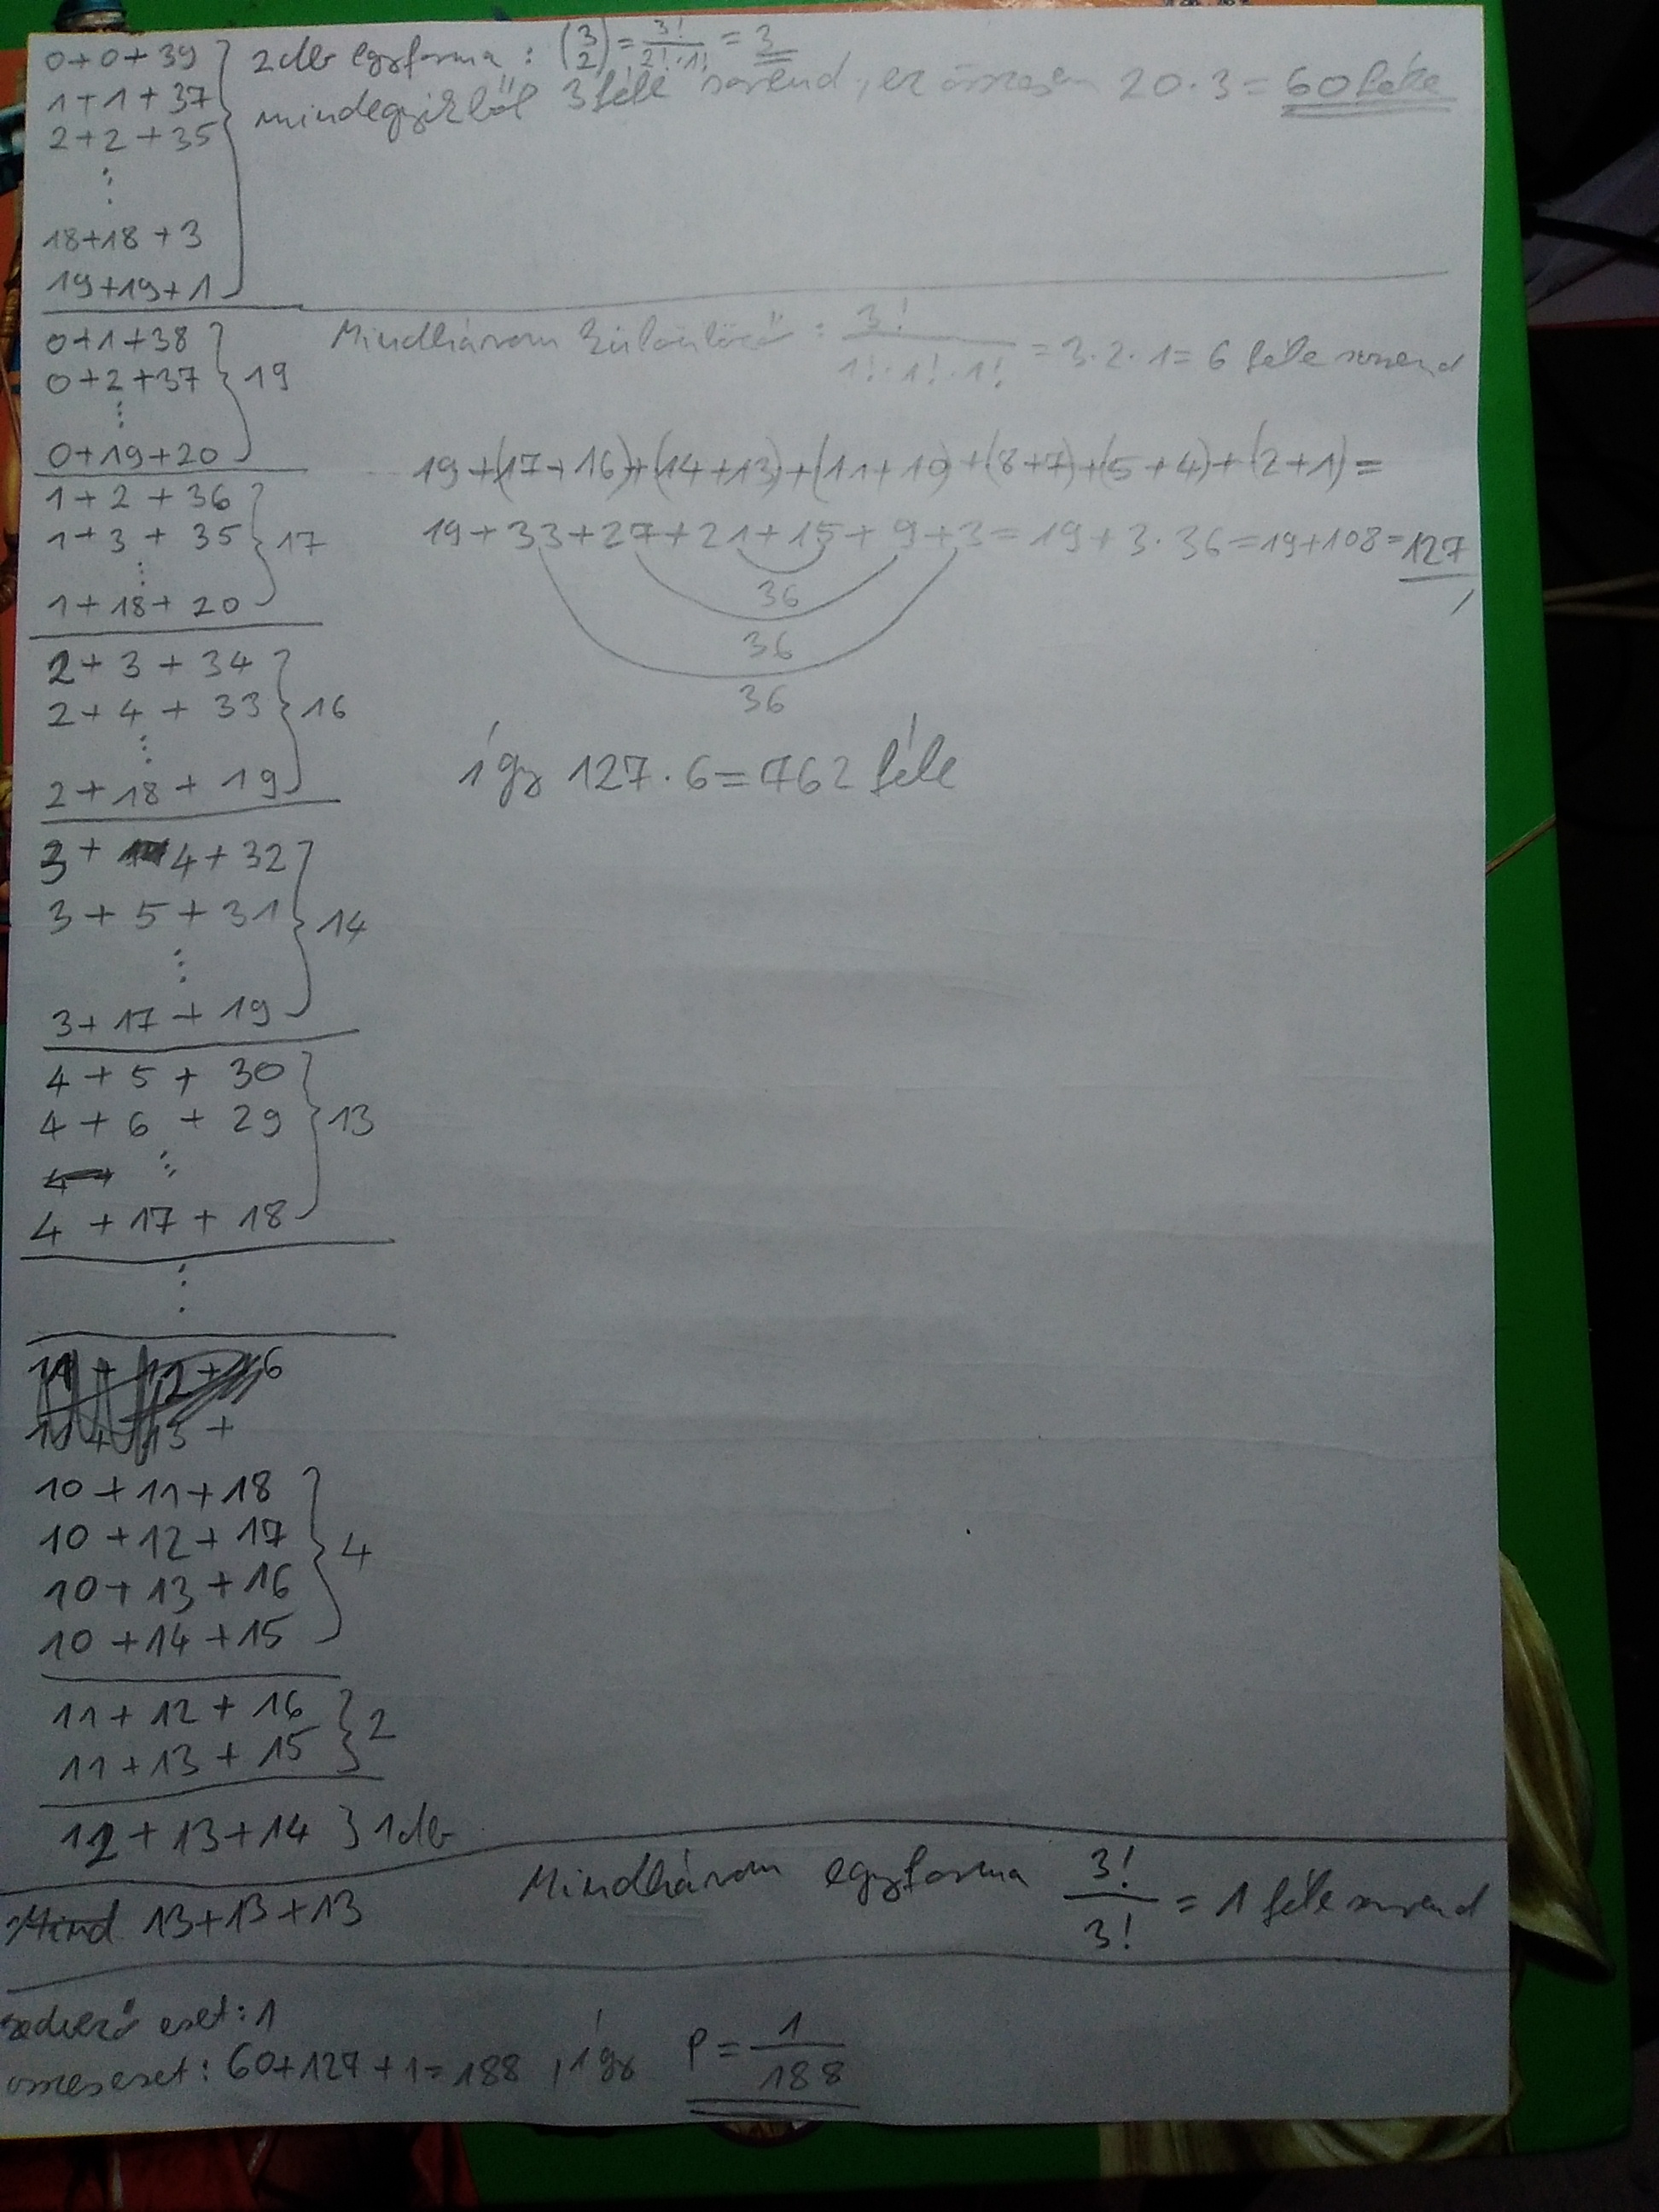 0+0+39
1+1+37
2+2+35
⋮
18+18+3
19+19+1
2db egyforma : (3 2) = 3!/(2!·1!) = 3
mindegyikből 3féle sorrend, ez összesen 20·3 = 60 féle
0+1+38
0+2+37 } 19
⋮
0+19+20
Mindhárom különböző : 3!/(1!·1!·1!) = 3·2·1 = 6 féle sorrend
1+2+36
1+3+35 } 17
⋮
1+18+20
19+(17+16)+(14+13)+(11+10)+(8+7)+(5+4)+(2+1)=
19+33+27+21+15+9+3 = 19+3·36 = 19+108 = 127
36
36
36
2+3+34
2+4+33 } 16
⋮
2+18+19
így 127·6=762 féle
3+4+32
3+5+31 } 14
⋮
3+17+19
4+5+30
4+6+29 } 13
⋮
4+17+18
⋮
10+11+18
10+12+17
10+13+16 } 4
10+14+15
11+12+16
11+13+15 } 2
12+13+14 } 1db
Mind 13+13+13
Mindhárom egyforma 3!/3! = 1 féle sorrend
kedvező eset: 1
összes eset: 60+127+1=188 , így P = 1/188